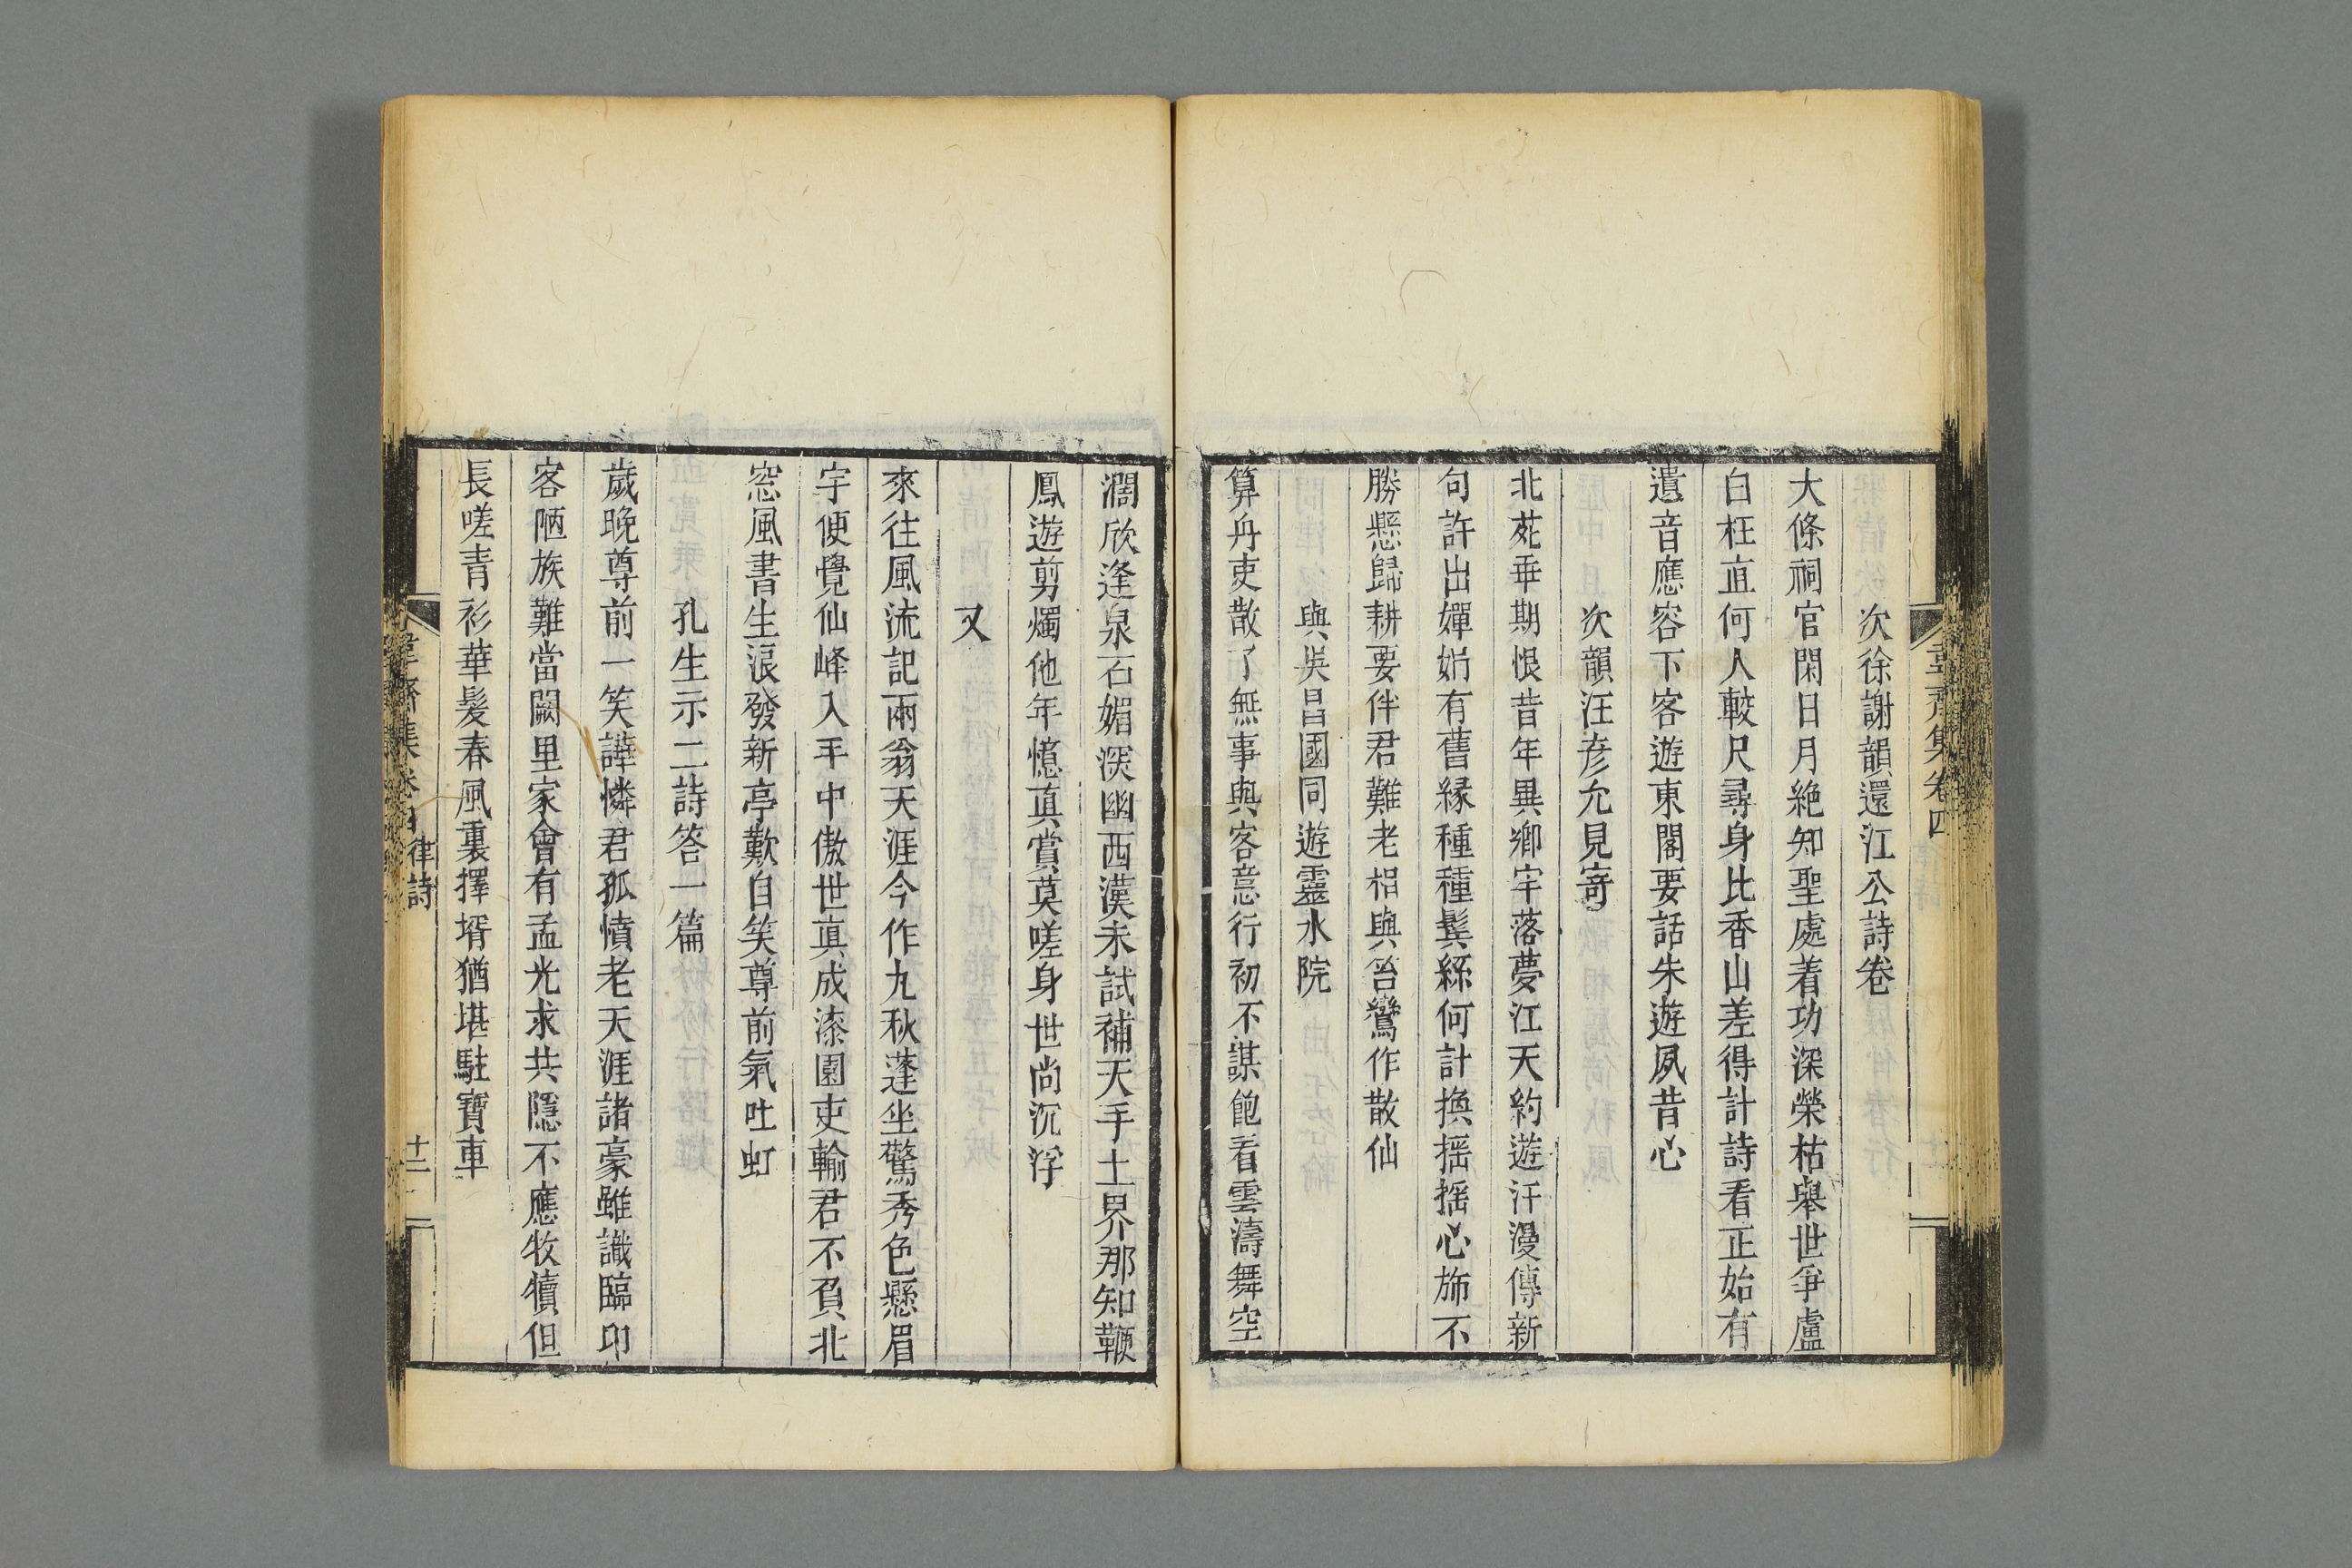 韋齋集卷四
次徐謝韻還江公詩卷
大條祠官閑日月絶知聖處着功深榮枯舉世爭盧
白枉直何人較尺尋身比香山差得計詩看正始有
遺音應容下客遊東閣要話朱遊夙昔心
次韻汪彦允見寄
北苑乖期恨昔年異鄉牢落夢江天約遊汗漫傳新
句許出嬋娟有舊縁種種鬂絲何計換揺揺心斾不
勝懸歸耕要伴君難老相與笞鸞作散仙
與吳昌國同遊靈水院
算舟吏散了無事與客意行初不謀飽看雲濤舞空
濶欣逢泉石媚深幽西漢未試補天手土界那知鞭
鳳遊剪燭他年憶真賞莫嗟身世尚沉浮
又
來往風流記兩翁天涯今作九秋蓬坐驚秀色懸眉
宇便覺仙峰入手中傲世真成漆園吏輸君不負北
窓風書生浪發新亭歎自笑尊前氣吐虹
孔生示二詩答一篇
歲晚尊前一笑譁憐君孤憤老天涯諸豪雖識臨卭
客陋族難當闕里家會有孟光求共隱不應牧犢但
長嗟青衫華髪春風裏擇壻猶堪駐寶車
韋齋集卷四 律詩 十二